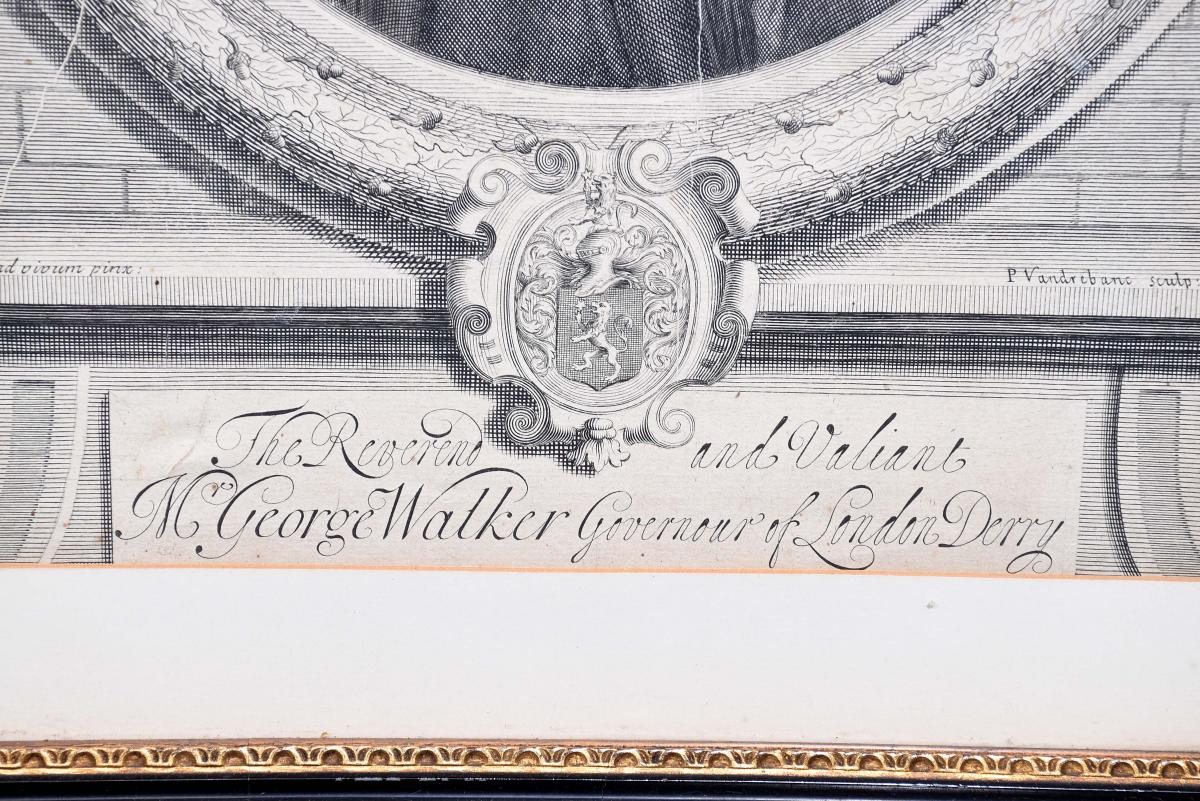 ad vivum pinx:
P Vandrebanc sculp
The Reverend and Valiant
Mr George Walker Governour of London Derry